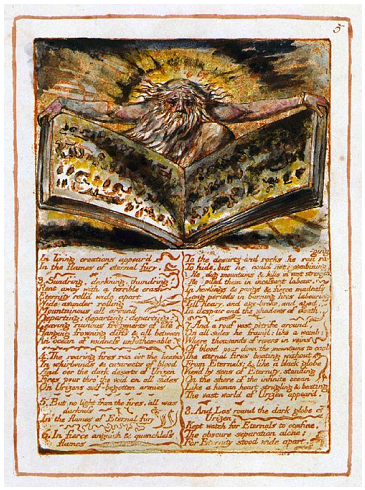 5
In living creations appear'd
In the flames of eternal fury.
3. Sund'ring, dark'ning, thund'ring
Rent away with a terrible crash
Eternity roll'd wide apart
Wide asunder rolling
Mountainous all around
Departing; departing; departing:
Leaving ruinous fragments of life
Hanging frowning cliffs & all between
An ocean of voidness unfathomable
4. The roaring fires ran o'er the heav'ns
In whirlwinds & cataracts of blood
And o'er the dark desarts of Urizen
Fires pour thro' the void on all sides
On Urizens self-begotten armies.
5. But no light from the fires. all was
darkness
In the flames of Eternal fury
6. In fierce anguish & quenchless
flames
To the desarts and rocks he ran
raging
To hide, but he could not: combining
He dug mountains & hills in vast strength
He piled them in incessant labour,
In howlings & pangs & fierce madness
Long periods in burning fires labouring
Till hoary, and age-broke, and aged,
In despair and the shadows of death.
7. And a roof, vast petrific around,
On all sides he fram'd: like a womb
Where thousands of rivers in veins
Of blood pour down the mountains to cool
The eternal fires beating without
From Eternals; & like a black globe
View'd by sons of Eternity, standing
On the shore of the infinite ocean
Like a human heart strugling & beating
The vast world of Urizen appear'd.
8. And Los round the dark globe of
Urizen
Kept watch for Eternals to confine,
The obscure separation alone;
For Eternity stood wide apart,